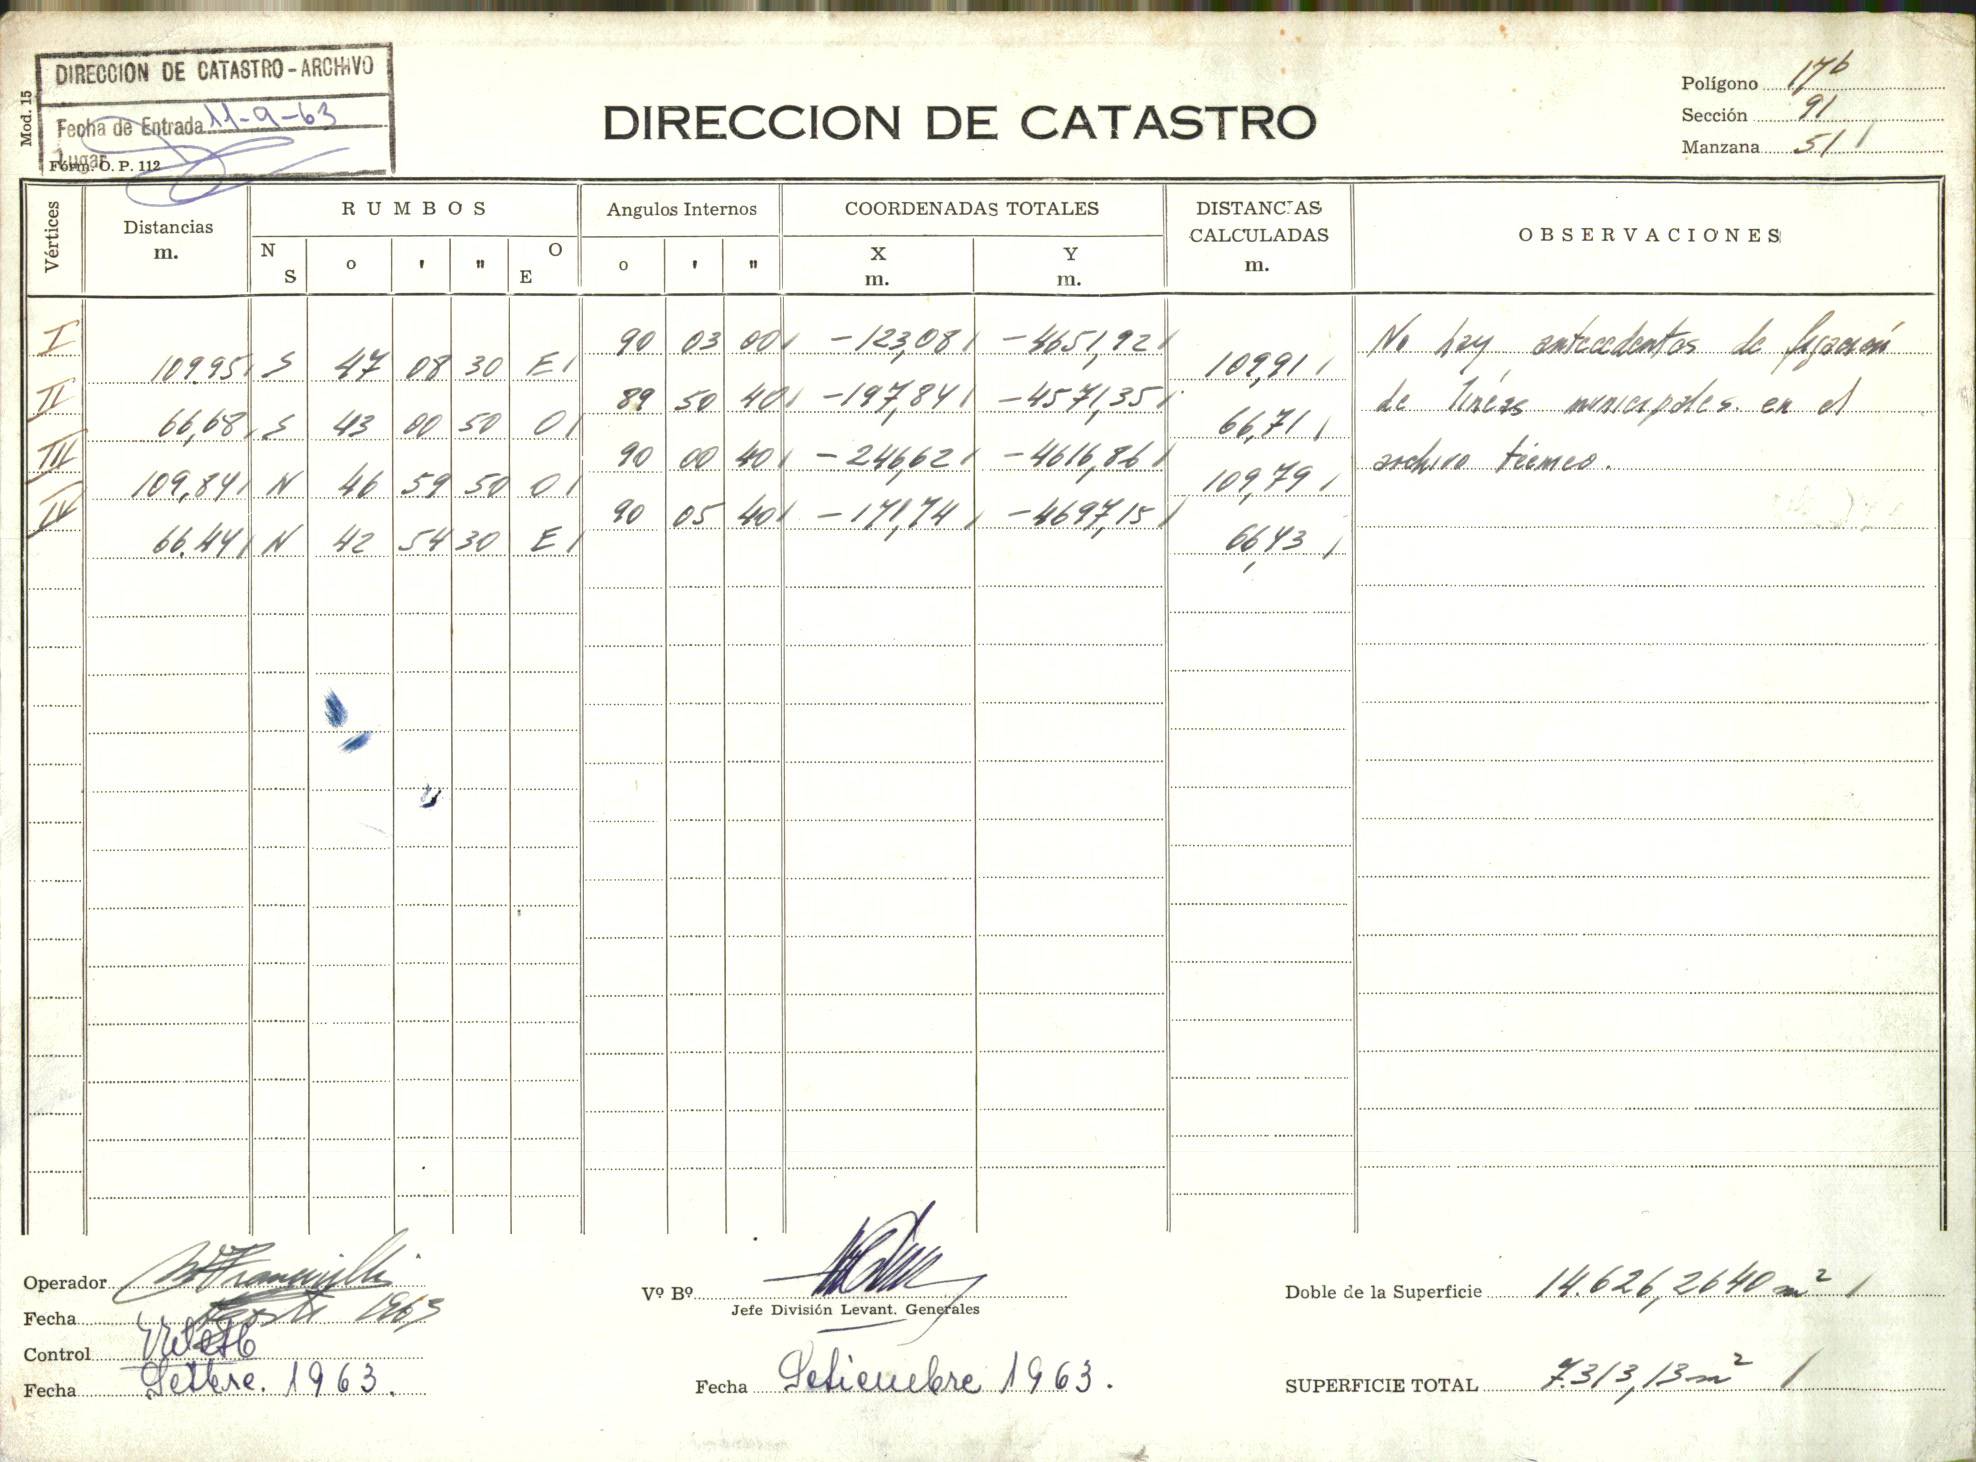 DIRECCION DE CATASTRO - ARCHIVO
Fecha de Entrada 11-9-63
Lugar
Mod. 15
Form. O. P. 112
DIRECCION DE CATASTRO
Polígono 17b
Sección 91
Manzana 51
Vértices
Distancias
m.
RUMBOS
N S ° ' " E O
Angulos Internos
° ' "
COORDENADAS TOTALES
X
m.
Y
m.
DISTANCIAS
CALCULADAS
m.
OBSERVACIONES
I 90 03 00 -123,08 -4651,92
109.95 S 47 08 30 E 109,91
II 89 50 40 -197,84 -4571,35
66,68 S 43 00 50 O 66,71
III 90 00 40 -246,62 -4616,86
109,84 N 46 59 50 O 109,79
IV 90 05 40 -171,74 -4697,15
66.44 N 42 54 30 E 66,43
No hay antecedentes de fijación
de líneas municipales en el
archivo técnico.
Operador
Fecha Agosto 1963
Control
Fecha Setbre. 1963.
Vº Bº
Jefe División Levant. Generales
Fecha Setiembre 1963.
Doble de la Superficie 14.626,2640 m²
SUPERFICIE TOTAL 7.313,13 m²